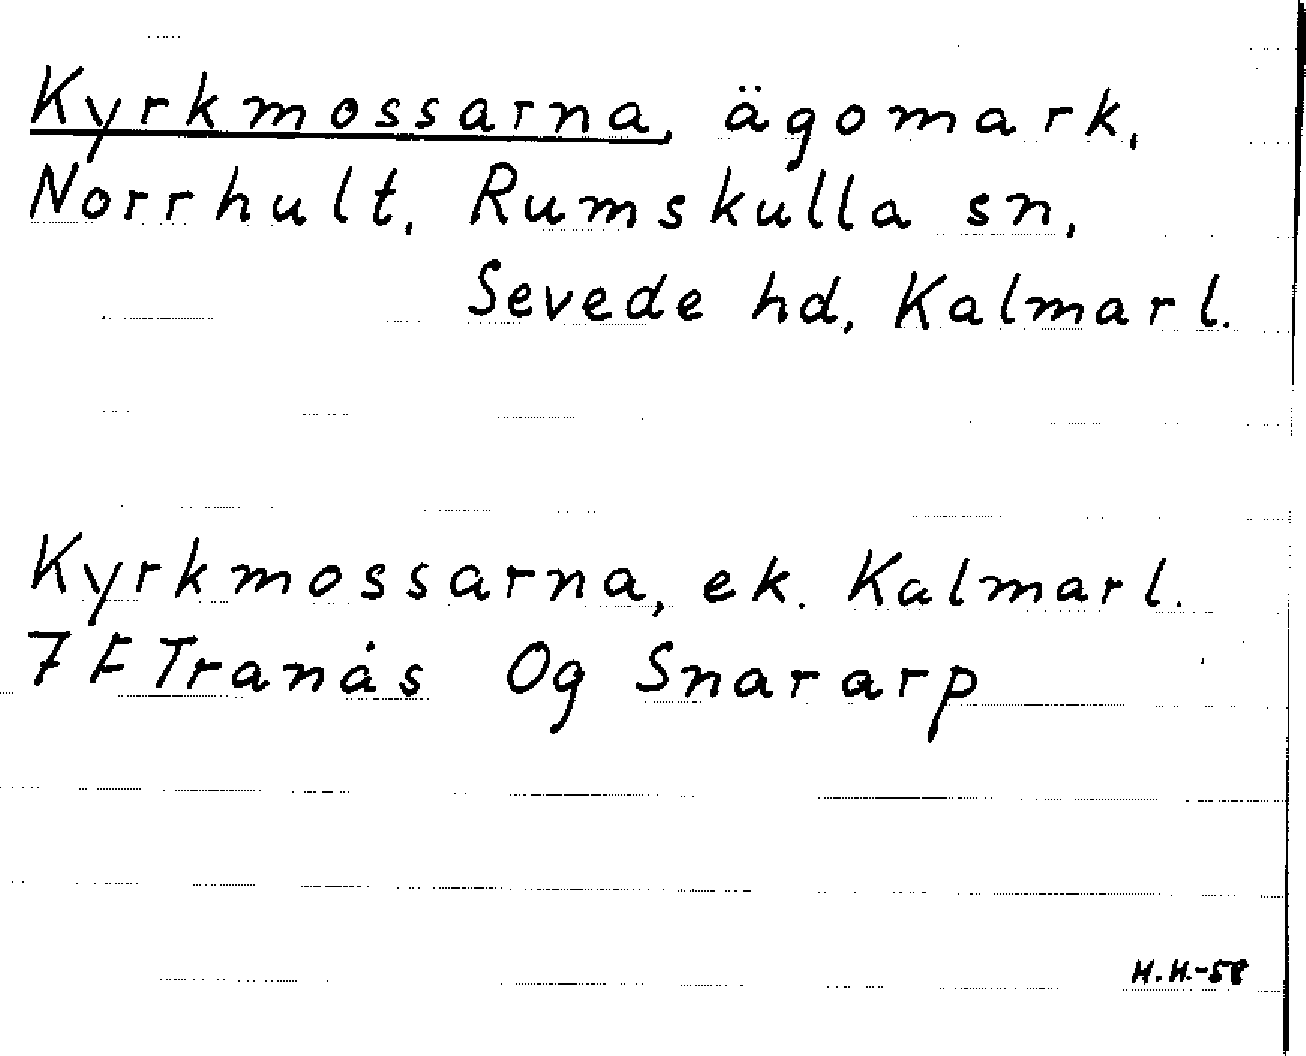 Kyrkmossarna, ägomark,
Norrhult, Rumskulla sn,
Sevede hd, Kalmar l.
Kyrkmossarna, ek. Kalmar l.
7 F Tranås Og Snararp
H.H.-58